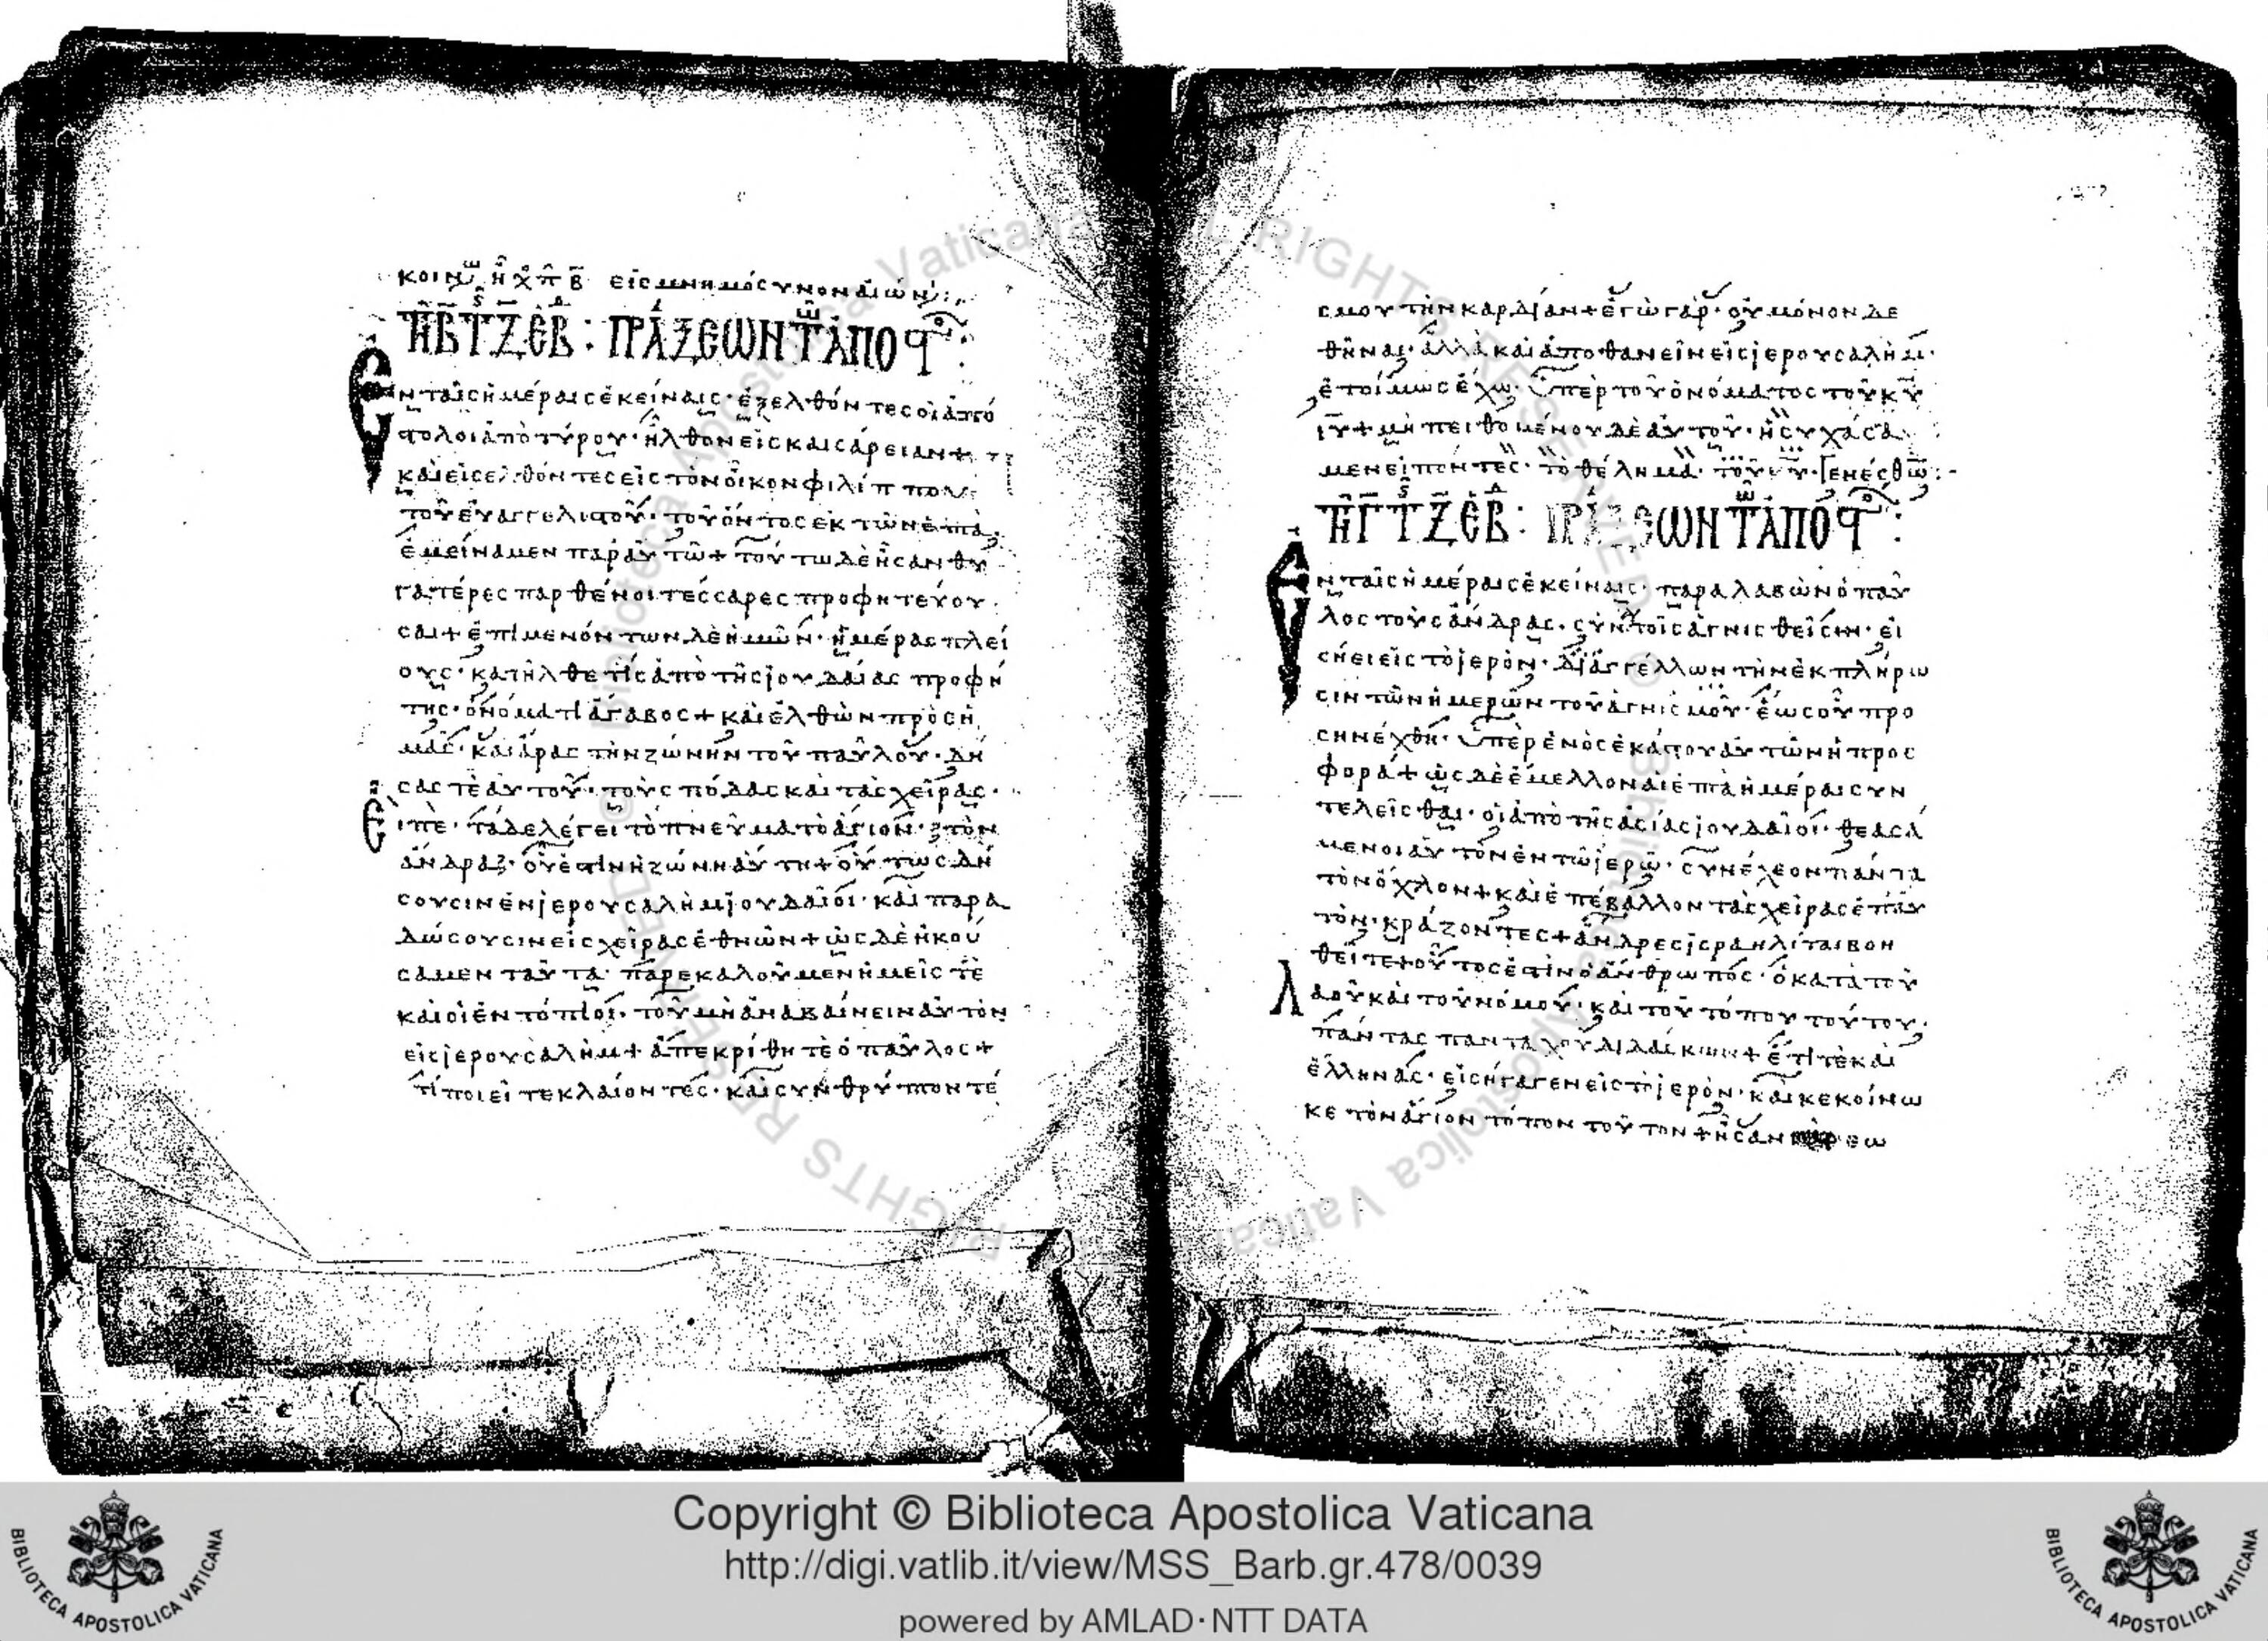 εἰς μνημόσυνον αἰών
Τῇ Β Τ Ζ ἑβ : Πράξεων τ ἀποστ :
Ἐν ταῖς ἡμέραις ἐκείναις· ἐξελθόντες οἱ ἀπό
στολοι ἀπὸ τύρου· ἦλθον εἰς καισάρειαν +
καὶ εἰσελθόντες εἰς τὸν οἶκον φιλίππου
τοῦ εὐαγγελιστοῦ· τοῦ ὄντος ἐκ τῶν ἑπτὰ·
ἐμείναμεν παρ αὐτῶ + τούτω δὲ ἦσαν θυ
γατέρες παρθένοι τέσσαρες προφητεύου
σαι + ἐπιμενόντων δὲ ἡμῶν· ἡμέρας πλεί
ους· κατῆλθε τίς ἀπὸ τῆς ἰουδαίας προφή
της· ὀνόματι ἄγαβος + καὶ ἐλθὼν πρὸς ἡ
μᾶς· καὶ ἄρας τὴν ζώνην τοῦ παύλου· δή
σας τὲ αὐτοῦ· τοὺς πόδας καὶ τὰς χεῖρας·
εἶπε· τάδε λέγει τὸ πνεῦμα τὸ ἅγιον· τὸν
ἄνδρα οὗ ἐστὶν ἡ ζώνη αὕτη + οὕτως δή
σουσιν ἐν ἰερουσαλὴμ ἰουδαῖοι· καὶ παρα
δώσουσιν εἰς χεῖρας ἐθνῶν + ὡς δὲ ἠκού
σαμεν ταῦτα· παρεκαλοῦμεν ἡμεῖς τὲ
καὶ οἱ ἐντόπιοι· τοῦ μὴ ἀναβαίνειν αὐτὸν
εἰς ἰερουσαλὴμ + ἀπεκρίθη τὲ ὁ παῦλος +
τί ποιεῖτε κλαίοντες· καὶ συνθρύπτοντέ
ς μου τὴν καρδίαν + ἐγὼ γὰρ· οὐ μόνον δε
θῆναι· ἀλλὰ καὶ ἀποθανεῖν εἰς ἰερουσαλὴμ·
ἑτοίμως ἔχω· ὑπὲρ τοῦ ὀνόματος τοῦ κυ
ιυ + μὴ πειθομένου δὲ αὐτοῦ· ἡσυχάσα
μεν εἰπόντες· τὸ θέλημα τοῦ κυ γενέσθω :-
Τῇ Γ Τ Ζ ἑβ : Πράξεων τ ἀποστ :
Ἐν ταῖς ἡμέραις ἐκείναις· παραλαβὼν ὁ παῦ
λος τοὺς ἄνδρας· σὺν τοῖς ἁγνισθεῖσιν· εἰ
σήει εἰς τὸ ἱερὸν· διαγγέλλων τὴν ἐκπλήρω
σιν τῶν ἡμερῶν τοῦ ἁγνισμοῦ· ἕως οὗ προ
σηνέχθη· ὑπὲρ ἑνὸς ἑκάστου αὐτῶν ἡ προς
φορά + ὡς δὲ ἔμελλον αἱ ἑπτὰ ἡμέραι συν
τελεῖσθαι· οἱ ἀπὸ τῆς ἀσίας ἰουδαῖοι· θεασά
μενοι αὐτὸν ἐν τῶ ἱερῶ· συνέχεον πάντα
τὸν ὄχλον + καὶ ἐπέβαλλον τὰς χεῖρας ἐπ αὐ
τὸν· κράζοντες + ἄνδρες ἰσραηλίται βοη
θεῖτε + οὗτος ἐστὶν ὁ ἄνθρωπος· ὁ κατὰ τοῦ
λαοῦ καὶ τοῦ νόμου· καὶ τοῦ τόπου τούτου·
πάντας πανταχοῦ διδάσκων + ἔτι τὲ καὶ
ἕλληνας· εἰσήγαγεν εἰς τὸ ἱερὸν· καὶ κεκοίνω
κε τὸν ἅγιον τόπον τοῦτον + ἦσαν
Copyright © Biblioteca Apostolica Vaticana
http://digi.vatlib.it/view/MSS_Barb.gr.478/0039
powered by AMLAD·NTT DATA
BIBLIOTECA APOSTOLICA VATICANA
BIBLIOTECA APOSTOLICA VATICANA